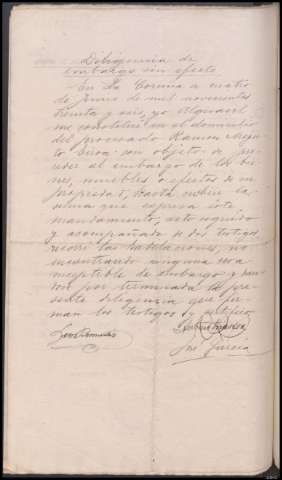 Diligencia de
embargo sin efecto
En La Coruña a cuatro
de Junio de mil novecientos
treinta y seis, yo Alguacil
me constituí en el domicilio
del procesado Ramon
con objeto de pro
ceder al embargo de los bie
nes, muebles o efectos de su
propiedad, hasta cubrir la
suma que expresa este
mandamiento, acto seguido
y acompañado de dos testigos
recorrí las habitaciones, no
encontrando ninguna cosa
suceptible de embargo y
por terminada la pre
sente diligencia que fir
man los testigos y certifico
José García